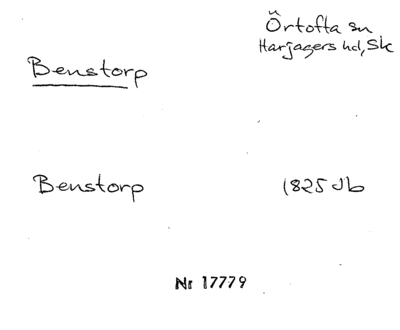 Örtofta sn
Harjagers hd, Sk
Benstorp
Benstorp 1825 Jb
Nr 17779